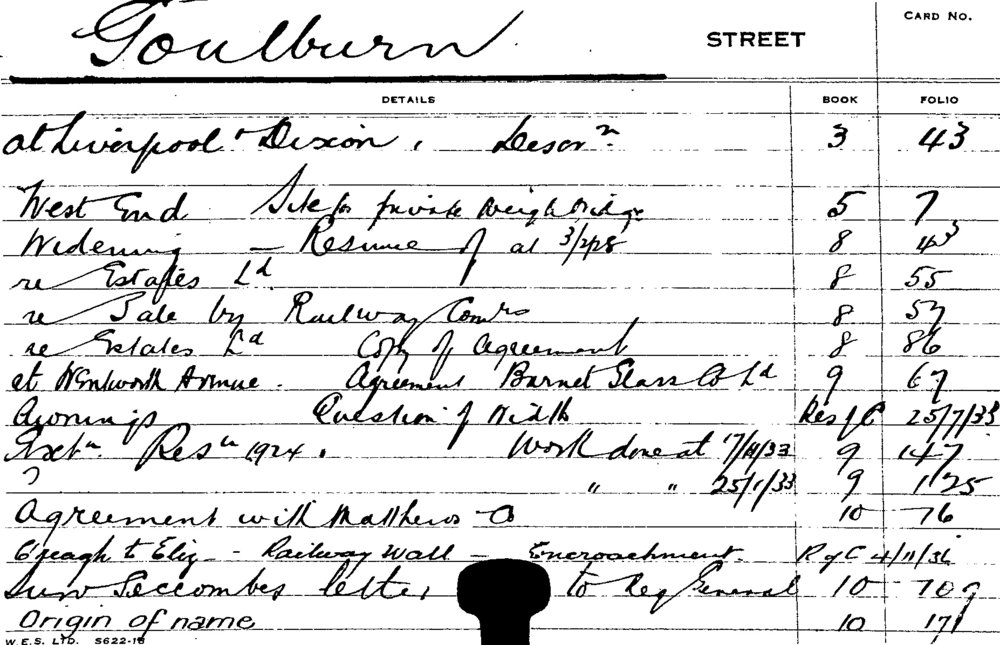 Goulburn STREET CARD No.
DETAILS BOOK FOLIO
at Liverpool & Dixon, Descrn 3 43
West End Site for private Weighbridge 5 7
Widening — Resume of at 3/2/28 8 43
re Estates Ld 8 55
re Sale by Railway Comrs 8 57
re Estates Ld Copy of Agreement 8 86
at Wentworth Avenue. Agreement Barnet Glass Co Ld 9 67
Awnings Question of Width Res of C 25/7/33
Extn. Resn 1924. Work done at 17/11/33 9 147
" " 25/1/33 9 125
Agreement with Matthews 10 76
to Eliz - Railway Wall — Encroachment. R of C 4/11/36
Seccombes letter to Reg General 10 109
Origin of name 10 171
W.E.S. LTD. 5622-18